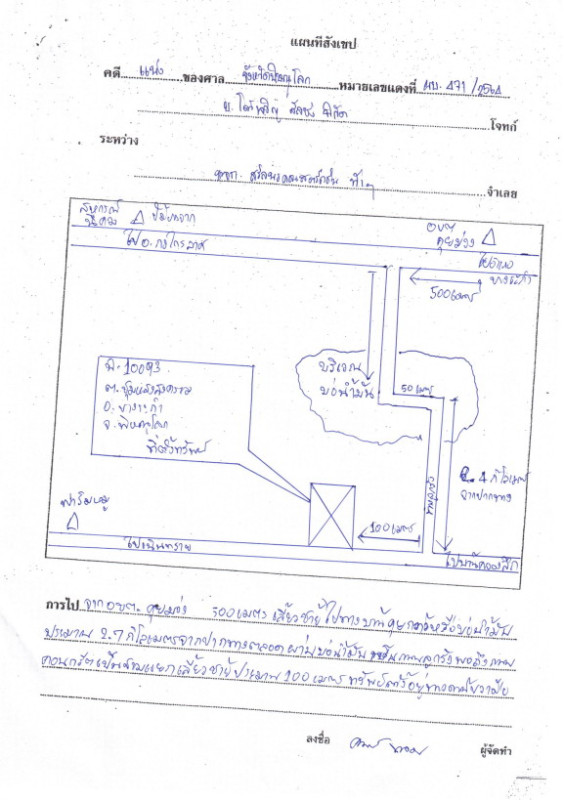 แผนที่สังเขป
คดี แพ่ง ของศาล จังหวัดพิษณุโลก หมายเลขแดงที่ ผบ. 471/2564
โจทก์
ระหว่าง
จำเลย
สหกรณ์ ขี้ยกจาก อบต.
คุยม่วง
ไป อ. กงไกรลาศ ไปแยก
บางระกำ
500 เมตร
บริเวณ
บ่อน้ำมัน
50 เมตร
10093
ต. ชุมแสงสงคราม
อ. บางระกำ
จ. พิษณุโลก
ที่ตั้งทรัพย์
4 กิโลเมตร
จากปากทาง
ทางลูกรัง
ฟาร์มหมู
100 เมตร
ไปเนินทราย ไปบ้านคลองลึก
การไป จาก อบต. คุยม่วง 500 เมตร เลี้ยวซ้ายไปทางบ้าน บ่อน้ำมัน
ประมาณ 2.7 กิโลเมตรจากปากทางตลอด ผ่านบ่อน้ำมัน ทางลูกรังพอถึงทาง
คอนกรีตเป็นสามแยกเลี้ยวซ้ายประมาณ 100 เมตร ทรัพย์ อยู่ทาง
ลงชื่อ ผู้จัดทำ